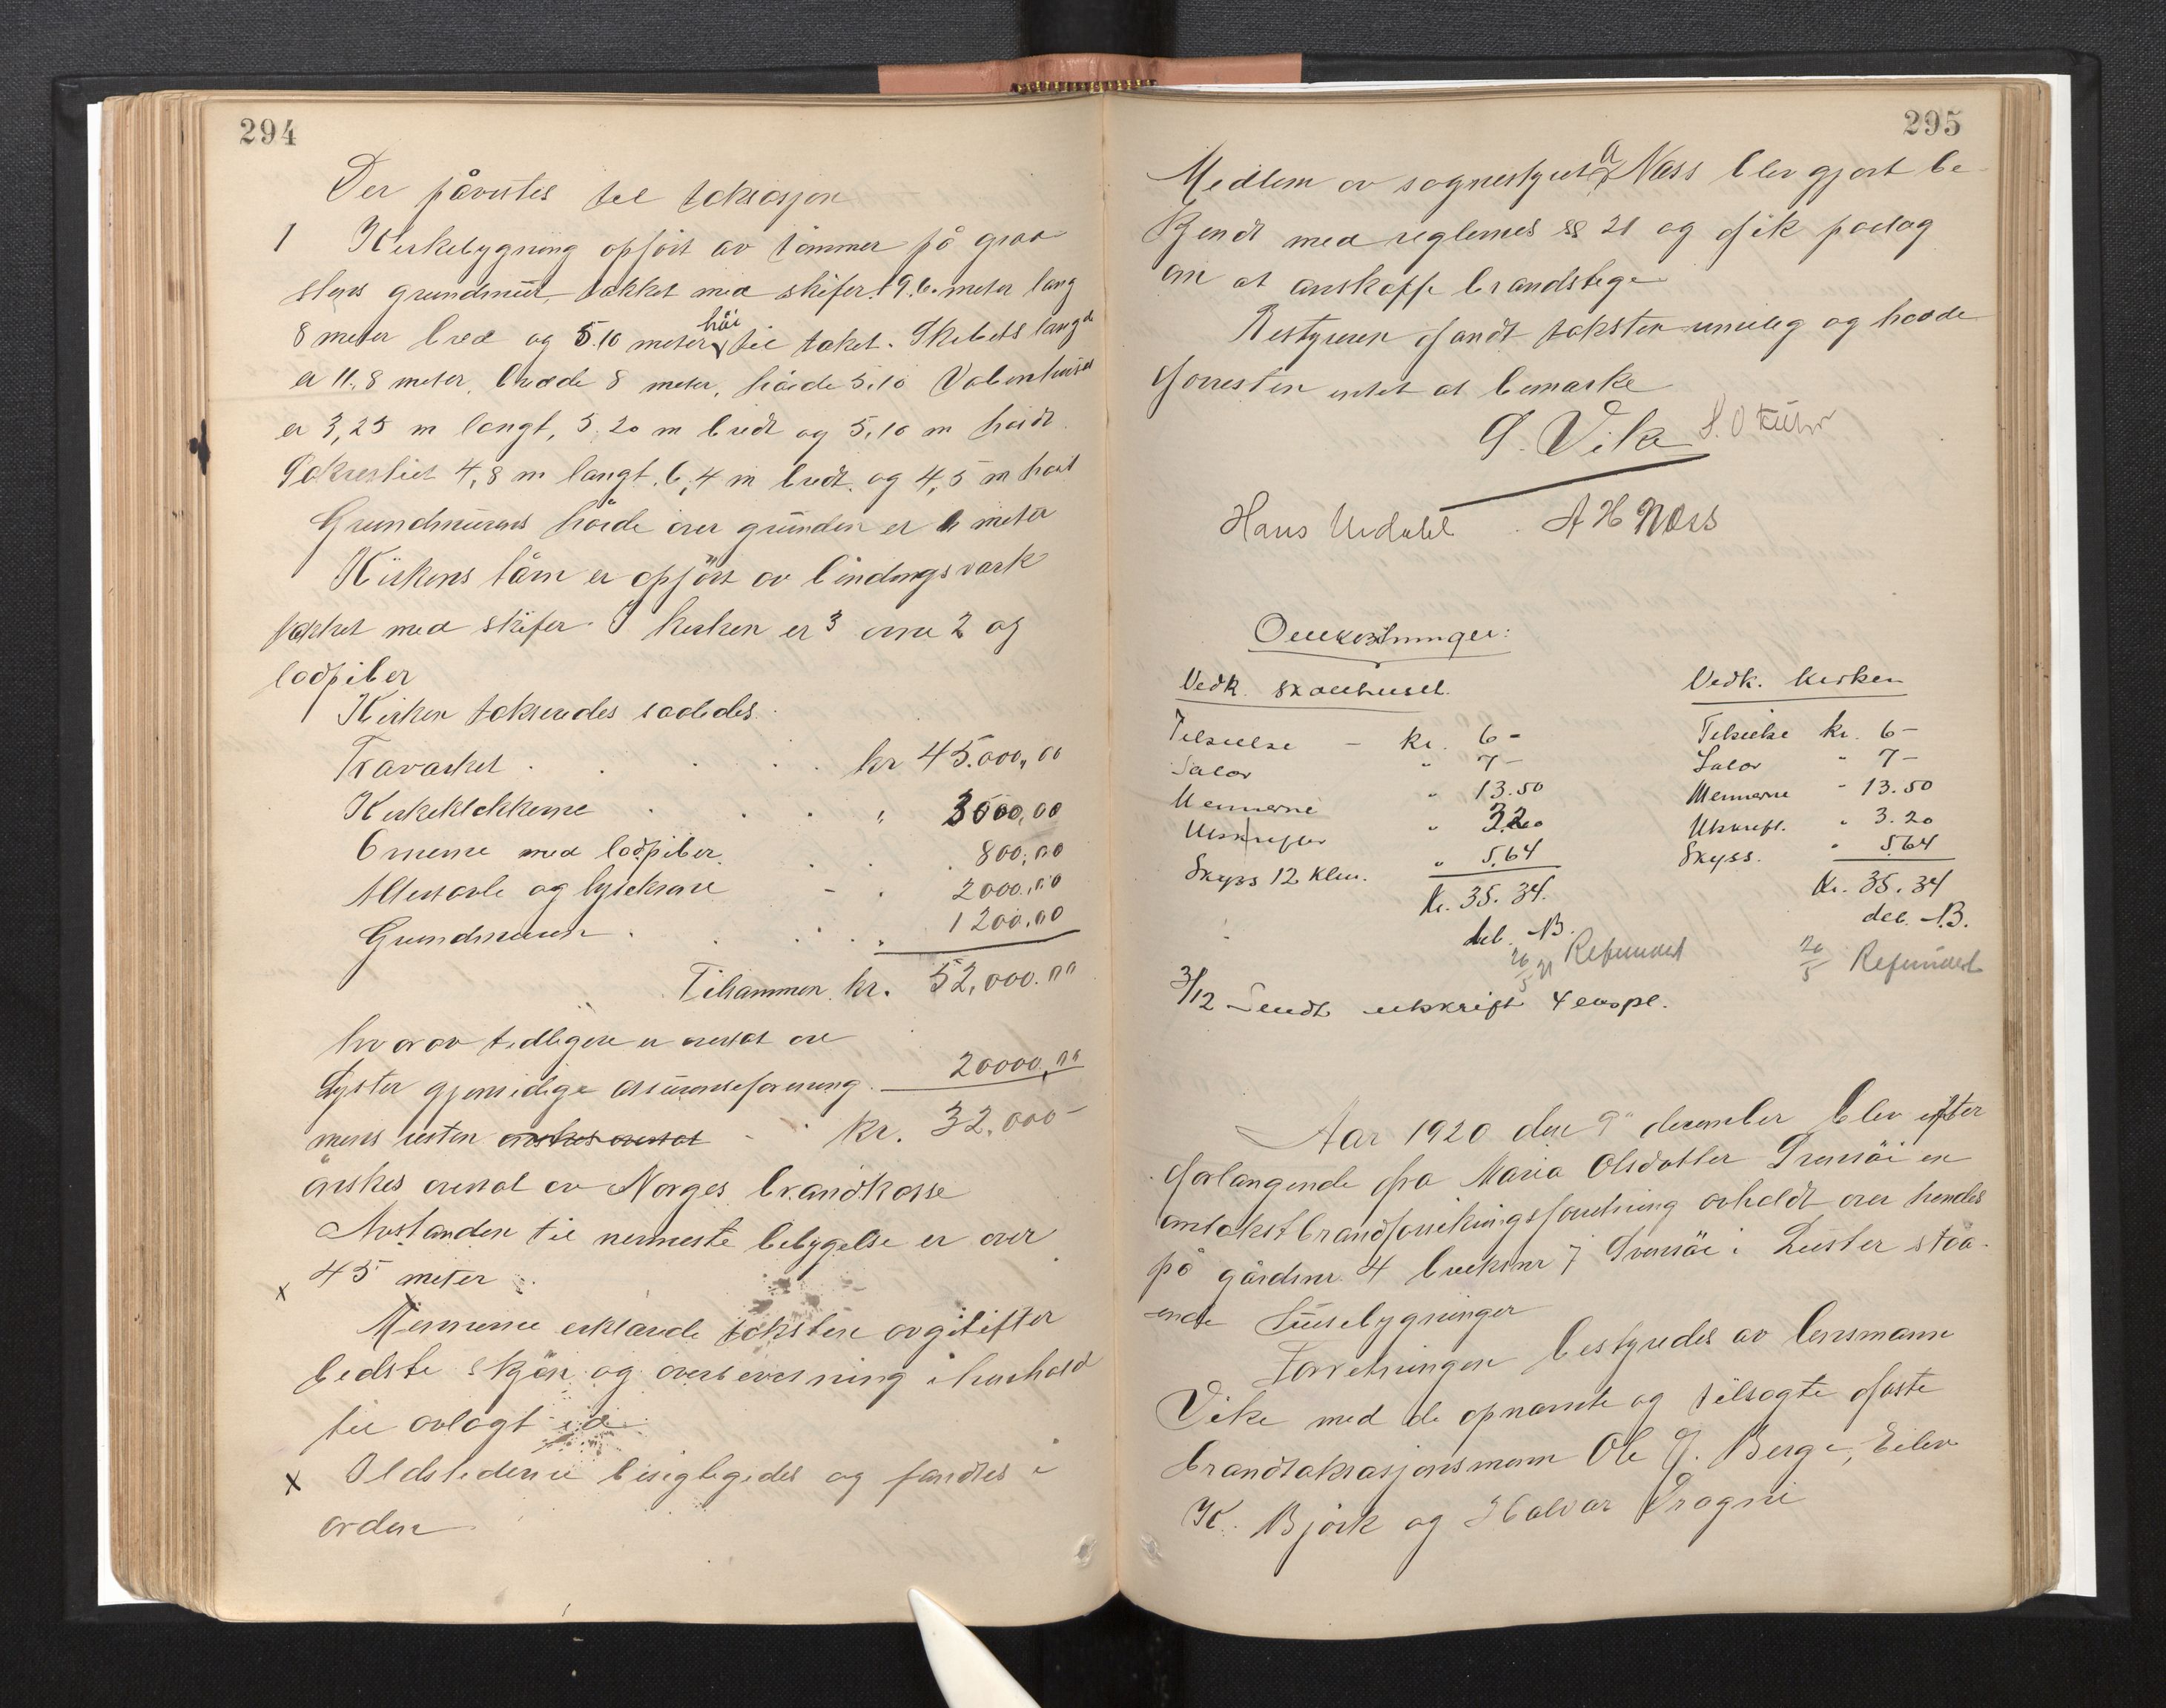 294
Der påvistes til taksasjon
1 Kirkebygning opført av tømmer på graa
stens grundmur takket med skifer. 19.6. meter lang
8 meter bred og 5.10 meter høi til taket. Skibets langde
er 11.8 meter, brædde 8 meter, høide 5.10 Vabenhuset
er 3,25 m langt, 5.20 m bredt og 5.10 m høidt.
Sakrestiet 4,8 m langt. 6,4 m bredt. og 4,5 m høit
Grundmurens høide over grunden er 1 meter
Kirkens tårn er opført av bindingsværk
takket med skifer. I kirken er 3 ovne 2 og
lodpiber
Kirken takseredes saaledes.
Trævarket . . . . . kr 45.000,00
Kirkeklokkerne . . . " 3000,00
Ovnene med lodpiber . . . 800,00
Altertavle og lysekrone - . 2000,00
Grundmuren . . . . " 1200,00
Tilsammen kr. 52,000.00
hvorav tidligere er assurat ove
Lyster gjensidige assuranseforening. 20000,00
mens resten ønskes assurat - kr. 32,000-
ønskes assurat av Norges brandkasse
Avstanden til nermeste bebygelse er over
x 45 meter
Mennene erklærede taksten avgit efter
bedste skjøn og overbevisning i henhold
til avlagt ed
x Ildstederne besigtigedes og fandtes i
orden
295
Medlem av sognestyret A Næss blev gjort be-
kjendt med reglernes §§ 21 og fik paalag
om at anskaffe brandstige
Bestyreren fandt taksten rimelig og havde
forresten intet at bemærke
S. Vik
Hans Urdahl A H Næss
Omkostninger:
Vedk. skolehuset. Vedk. kirken
Tilsielse - kr. 6- Tilsielse kr. 6-
Salær " 7- Salær " 7-
Mennerne " 13.50 Mennerne " 13.50
Utskrifter " 3.20 Utskrift. " 3.20
Skyss 12 klm. " 5.64 Skyss. " 5.64
Kr. 35.34. Kr. 35.34
deb. B. deb. B.
20/5 21 Refundert 20/5 Refundert
3/12 Sendt utskrift 4 expl.
Aar 1920 den 9de december blev efter
forlangende fra Maria Olsdatter Svensøi en
omtakstbrandforsikringsforretning avholdt over hendes
på gårdsnr 4 bruksnr 7 Svensøi i Luster stå-
ende huusebygninger
Forretningen bestyredes av lensmann
Vike med de opnævnte og tilsagte faste
brandtaksasjonsmenn Ole J. Berge, Eilev
K. Bjørk og Halvar Drægni